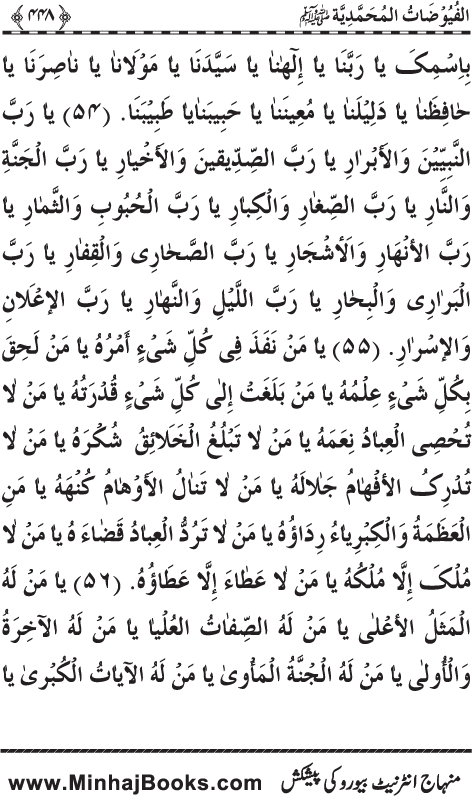 الفُيُوْضَاتُ المُحَمَّدِيَّة ﷺ ﴿۴۴۸﴾
بِاسْمِكَ يا رَبَّنَا يا إِلٰهَنَا يا سَيِّدَنَا يا مَوْلَانَا يا نَاصِرَنَا يا
حَافِظَنَا يا دَلِيْلَنَا يا مُعِيْنَنَا يا حَبِيبَنَايا طَبِيْبَنَا. (۵۴) يا رَبَّ
النَّبِيِّيْنَ وَالْأَبْرَارِ يا رَبَّ الصِّدِّيقينَ وَالْأَخْيارِ يا رَبَّ الْجَنَّةِ
وَالنَّارِ يا رَبَّ الصِّغارِ وَالْكِبارِ يا رَبَّ الْحُبُوبِ وَالثِّمارِ يا
رَبَّ الأَنْهَارِ وَالْأَشْجَارِ يا رَبَّ الصَّحَارِى وَالْقِفَارِ يا رَبَّ
الْبَرَارِى وَالْبِحَارِ يا رَبَّ اللَّيْلِ وَالنَّهَارِ يا رَبَّ الإِعْلَانِ
وَالإِسْرارِ. (۵۵) يا مَنْ نَفَذَ فِى كُلِّ شَىْءٍ أَمْرُهُ يا مَنْ لَحِقَ
بِكُلِّ شَىْءٍ عِلْمُهُ يا مَنْ بَلَغَتْ إِلَى كُلِّ شَىْءٍ قُدْرَتُهُ يا مَنْ لَا
تُحْصِى الْعِبَادُ نِعَمَهُ يا مَنْ لَا تَبْلُغُ الْخَلَائِقُ شُكْرَهُ يا مَنْ لَا
تَدْرِكُ الأَفْهَامُ جَلَالَهُ يا مَنْ لَا تَنَالُ الأَوْهَامُ كُنْهَهُ يا مَنِ
الْعَظَمَةُ وَالْكِبْرِيَاءُ رِدَاؤُهُ يا مَنْ لَا تَرُدُّ الْعِبَادُ قَضَاءَ هُ يا مَنْ لَا
مُلْكَ إِلَّا مُلْكُهُ يا مَنْ لَا عَطَاءَ إِلَّا عَطَاؤُهُ. (۵۶) يا مَنْ لَهُ
الْمَثَلُ الأَعْلَى يا مَنْ لَهُ الصِّفَاتُ الْعُلْيَا يا مَنْ لَهُ الآخِرَةُ
وَالْأُولَى يا مَنْ لَهُ الْجَنَّةُ الْمَأْوىٰ يا مَنْ لَهُ الآيَاتُ الْكُبْرىٰ يا
منہاج انٹرنیٹ بیورو کی پیشکش www.MinhajBooks.com